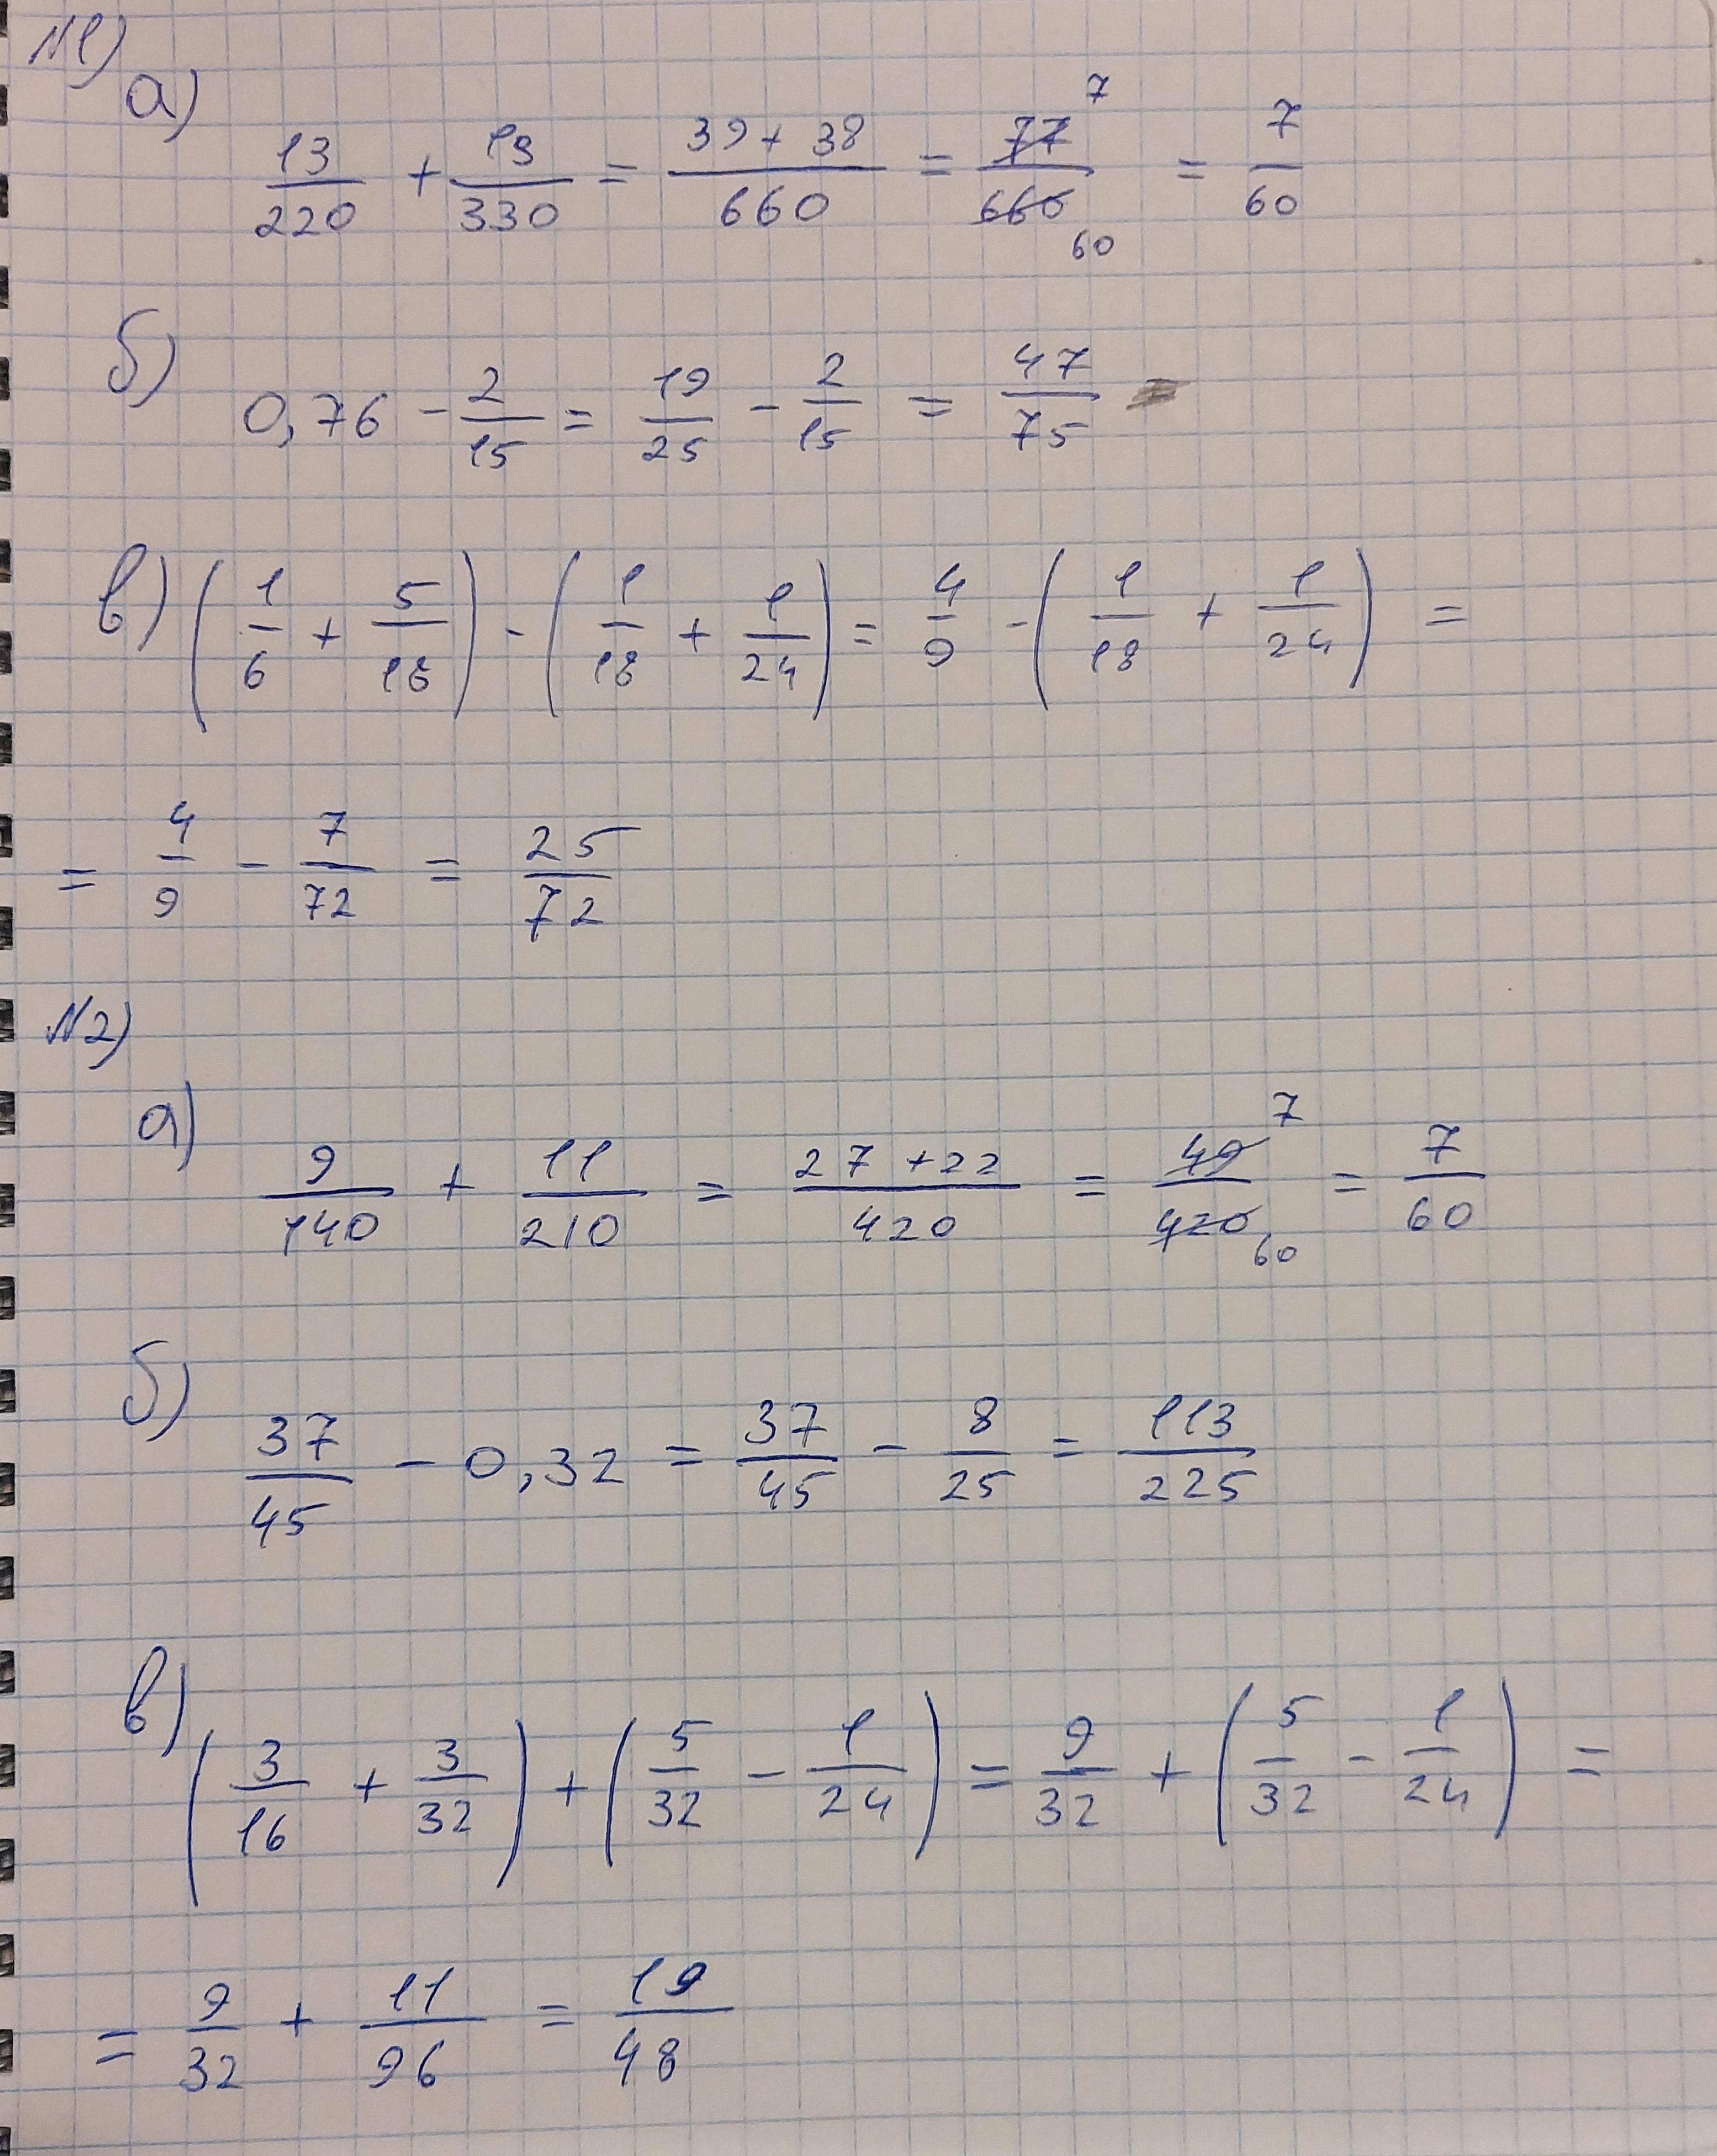 №1)
а)
13/220 + 19/330 = (39 + 38)/660 = 77/660 7 60 = 7/60
б)
0,76 - 2/15 = 19/25 - 2/15 = 47/75
в) (1/6 + 5/18) - (1/18 + 1/24) = 4/9 - (1/18 + 1/24) =
= 4/9 - 7/72 = 25/72
№2)
а)
9/140 + 11/210 = (27 + 22)/420 = 49/420 7 60 = 7/60
б)
37/45 - 0,32 = 37/45 - 8/25 = 113/225
в)
(3/16 + 3/32) + (5/32 - 1/24) = 9/32 + (5/32 - 1/24) =
= 9/32 + 11/96 = 19/48